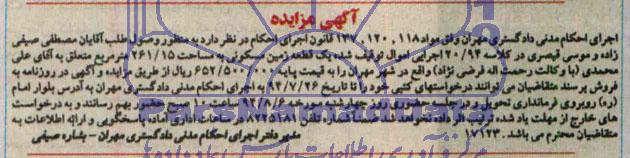 آگهی مزایده
اجرای احکام مدنی دادگستری مهران وفق مواد ۱۱۸، ۱۲۰، ۱۳۷ قانون اجرای احکام در نظر دارد به منظور وصول طلب آقایان مصطفی صیفی
زاده و موسی قیصری در کلاسه ۲۰/۹۴ اجرایی اموال توقیف شده یک قطعه زمین مسکونی به مساحت ۲۶۱/۱۵ مترمربع متعلق به آقای علی
محمدی (با وکالت رحمت اله فرضی نژاد) واقع در شهر مهران را به قیمت پایه ۶۵۲/۵۰۰/۰۰۰ ریال از طریق مزایده و آگهی در روزنامه به
فروش برسند متقاضیان می توانند درخواستهای کتبی خود را تا تاریخ ۹۴/۷/۲۶ به اجرای احکام مدنی دادگستری مهران به آدرس بلوار امام
(ره) روبروی فرمانداری تحویل و در جلسه حضوری روز چهارشنبه مورخه ۹۴/۸/۶ ساعت ۱۰ صبح حضور بهم رسانند و به درخواست
های خارج از مهلت یاد شده، ترتیب اثر داده نخواهد شد ضمنا شماره تلفن ۸۲۲۵۲۸۱ در ساعات اداری آماده پاسخگویی و ارائه اطلاعات به
متقاضیان محترم می باشد. ۱۷۱۲۳
مدیر دفتر اجرای احکام مدنی دادگستری مهران - بشاره صیفی